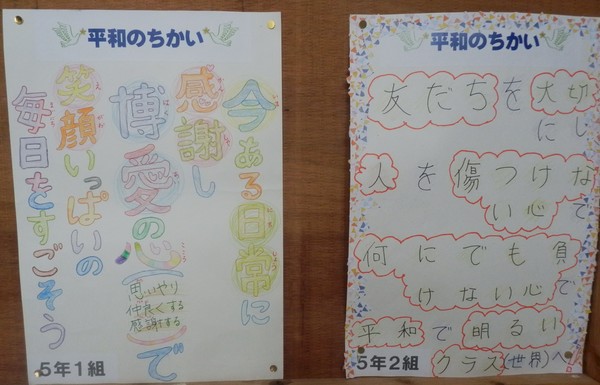 平和のちかい
今ある日常に
感謝し
博愛の心(思いやり
仲良くする
感謝する)で
笑顔いっぱいの
毎日をすごそう
5年1組
平和のちかい
友だちを大切
にし
人を傷つけな
い心で
何にでも負
けない心で
平和で明るい
クラス(世界)へ
5年2組